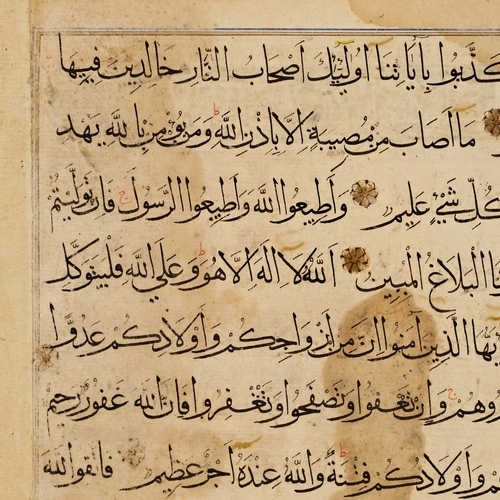 كذبوا بآياتنا اوليك اصحاب النار خالدين فيها
ما اصاب من مصيبة الا باذن الله ومن يؤمن بالله يهد
كل شيء عليم وأطيعوا الله وأطيعوا الرسول فان توليتم
نا البلاغ المبين الله لا اله الا هو وعلي الله فليتوكل
يها الذين آمنوا ان من ازواجكم واولادكم عدوا
وهم وان تعفوا وتصفحوا وتغفروا فان الله غفور رحيم
م واولادكم فتنة والله عنده اجر عظيم فاتقوا الله